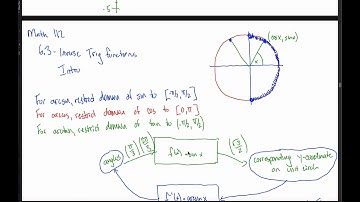 .5
Math 112
(cosx, sinx)
6.3 - Inverse Trig functions
x
Intro
For arcsin, restrict domain of sin to [-π/2, π/2]
For arccos, restrict domain of cos to [0, π]
For arctan, restrict domain of tan to (-π/2, π/2)
angles
f(x) = sin x
corresponding y-coordinate
on unit circle
f⁻¹(x) = arcsin x